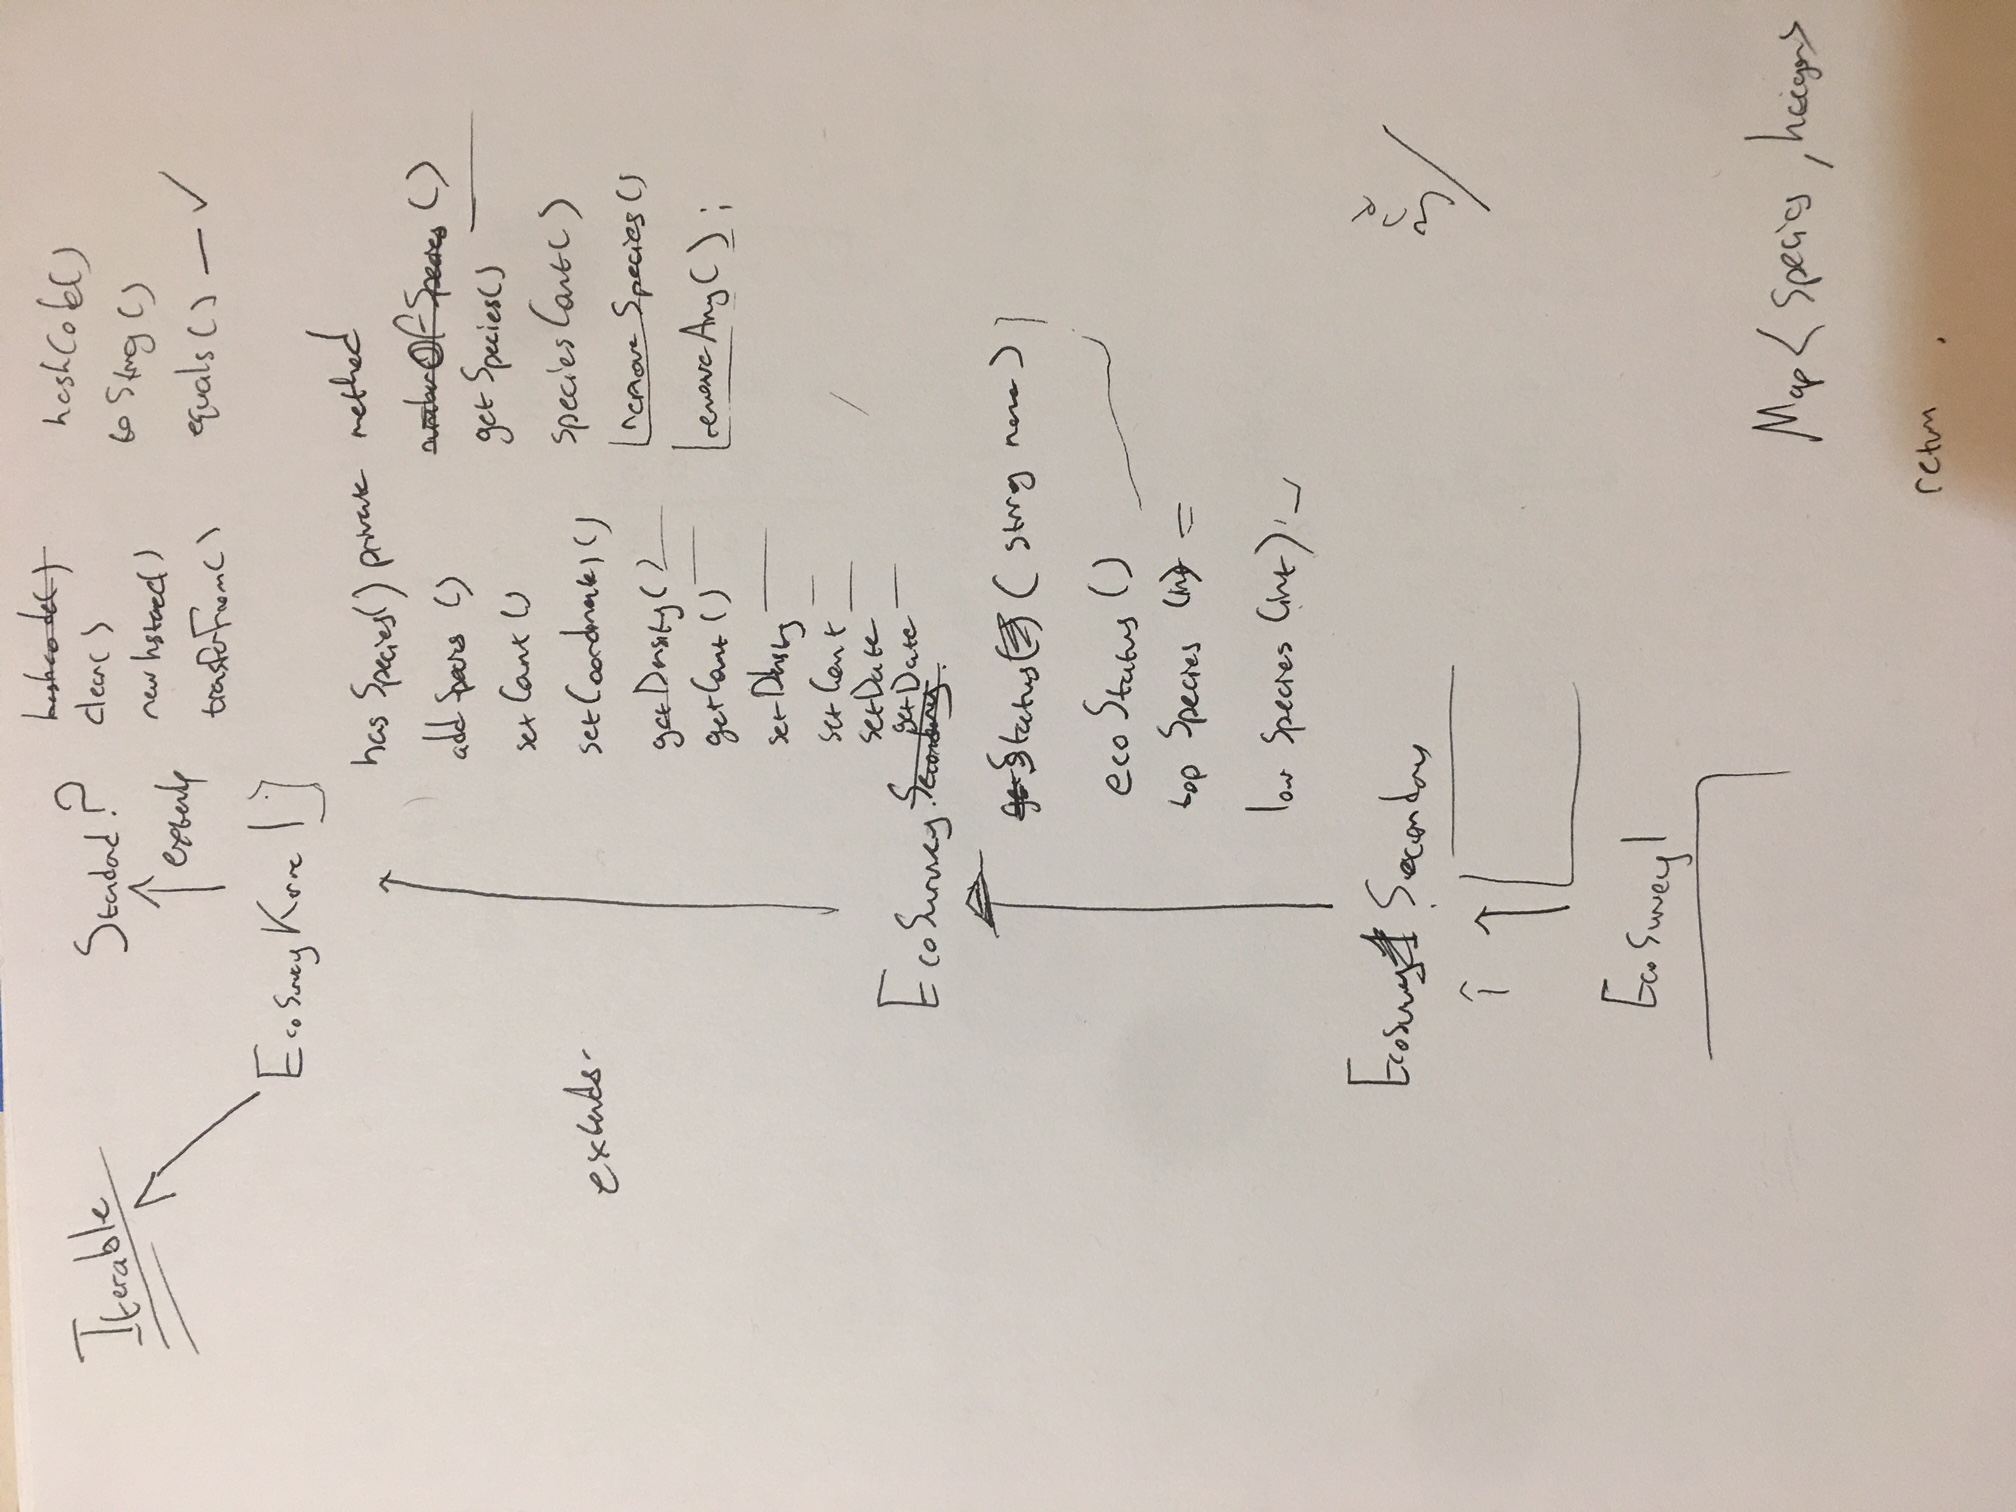 Iterable
Standard?
hashcode()
clear()
newInstance()
transferFrom()
hashCode()
toString()
equals() — ✓
extends
EcoSurveyKernel
hasSpecies() private method
addSpecies ()
setCount ()
setCoordinates ()
getDensity()
getCount ()
setDensity
setCount
setDate
getDate
numberOfSpecies ()
getSpecies()
speciesCount()
removeSpecies()
removeAny();
extends
EcoSurvey Secondary
getStatus ( String name )
ecoStatus ()
top Species (int)
low Species (int)
EcoSurvey1 Secondary
3rd
EcoSurvey1
Map< Species , Integer>
return .